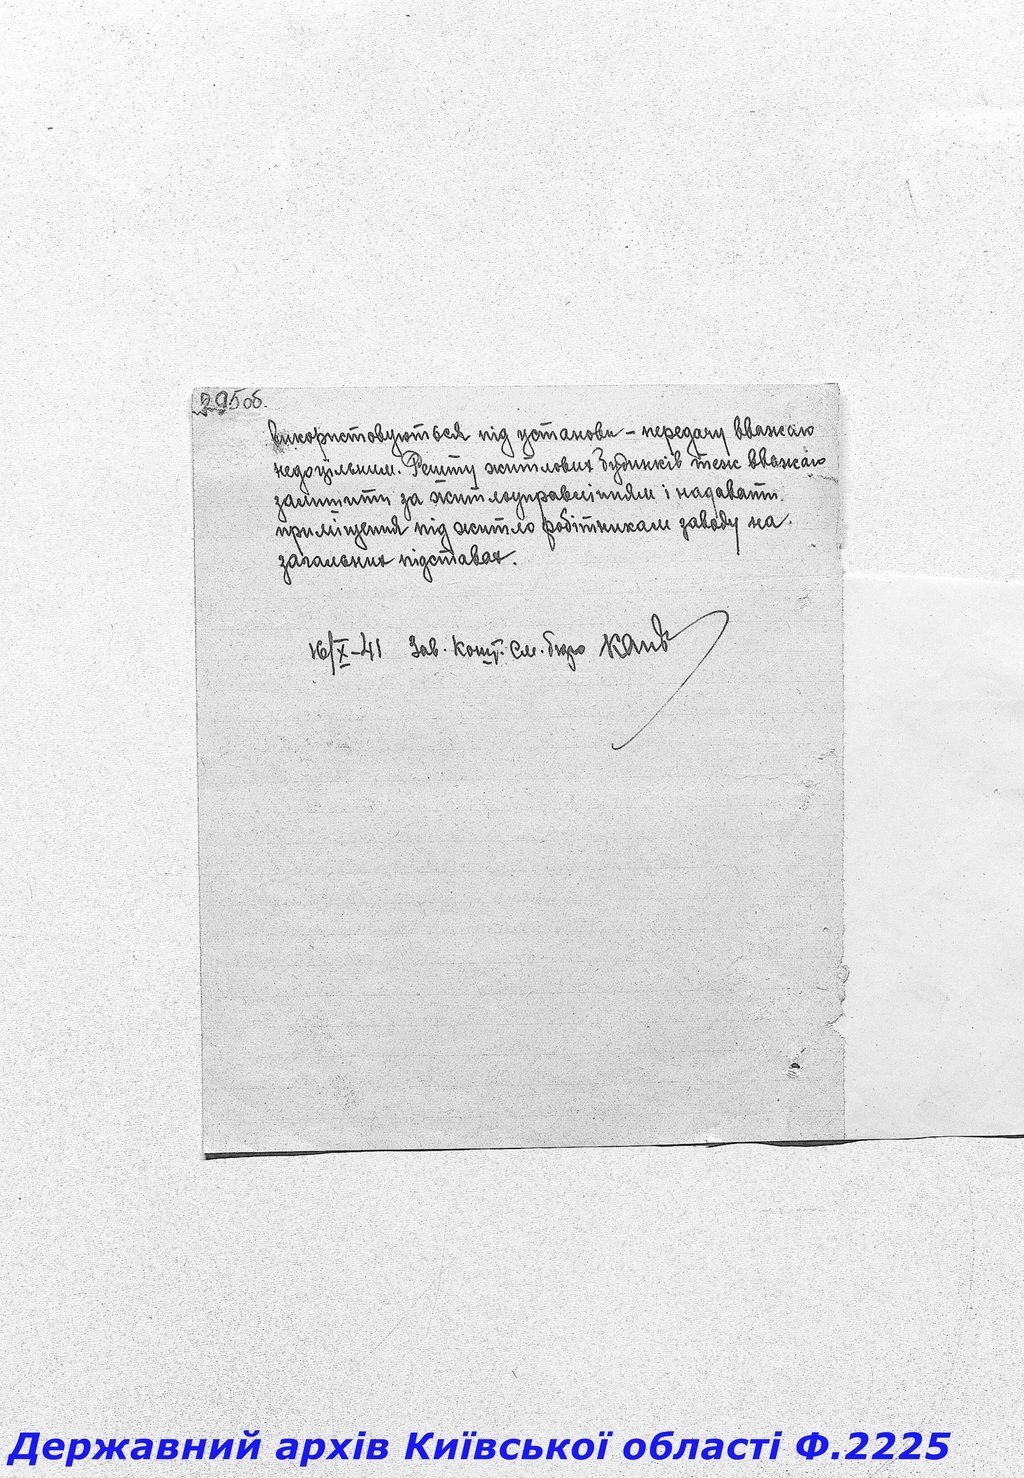 295об.
використовуються під установи - передачу вважаю
недоцільним. Решту житлових будинків теж вважаю
залишити за житлоуправлінням і надавати
приміщення під житло робітникам заводу на
загальних підставах.
16/X-41 Зав. Конт. См. бюро
Державний архів Київської області Ф.2225